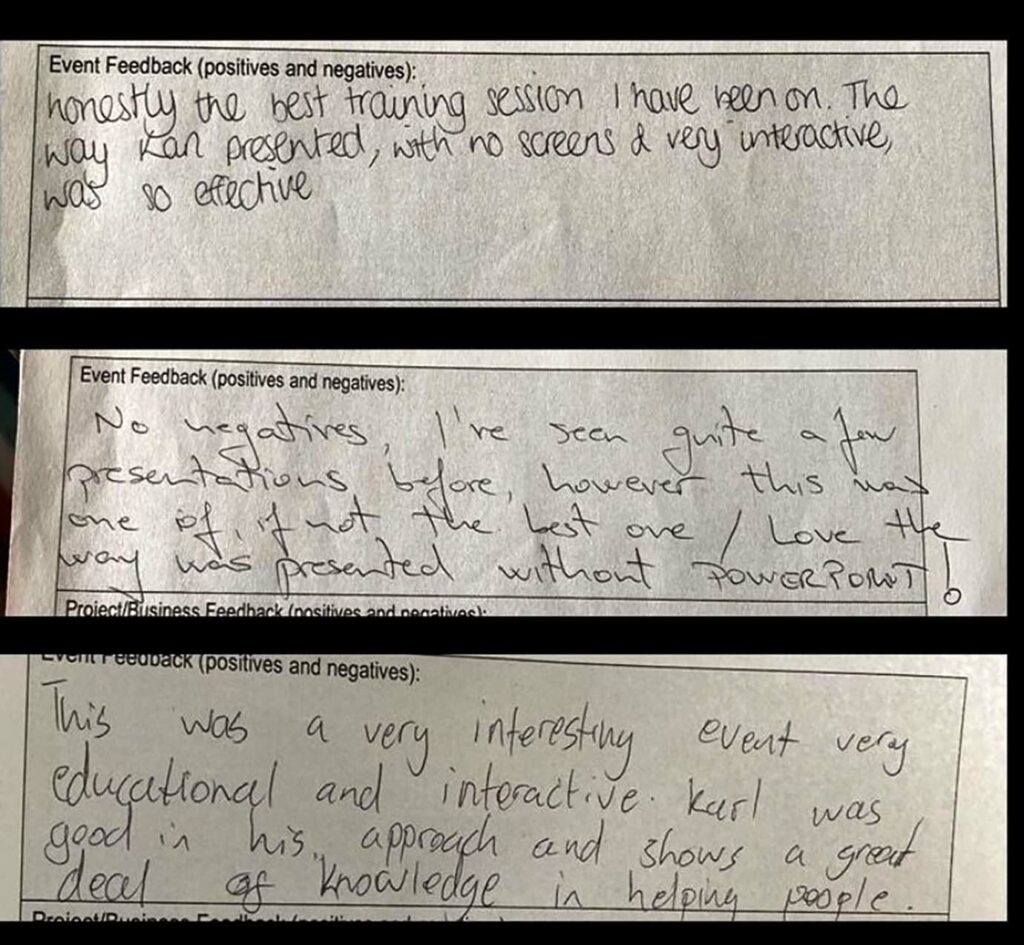 Event Feedback (positives and negatives):
honestly the best training session I have been on. The
way Karl presented, with no screens & very interactive,
was so effective
Event Feedback (positives and negatives):
No negatives, I've seen quite a few
presentations before, however this was
one of, if not the best one / Love the
way was presented without POWERPOINT!
Project/Business Feedback (positives and negatives):
Event Feedback (positives and negatives):
This was a very interesting event very
educational and interactive. Karl was
good in his approach and shows a great
deal of knowledge in helping people.
Project/Business Feedback (positives and negatives):